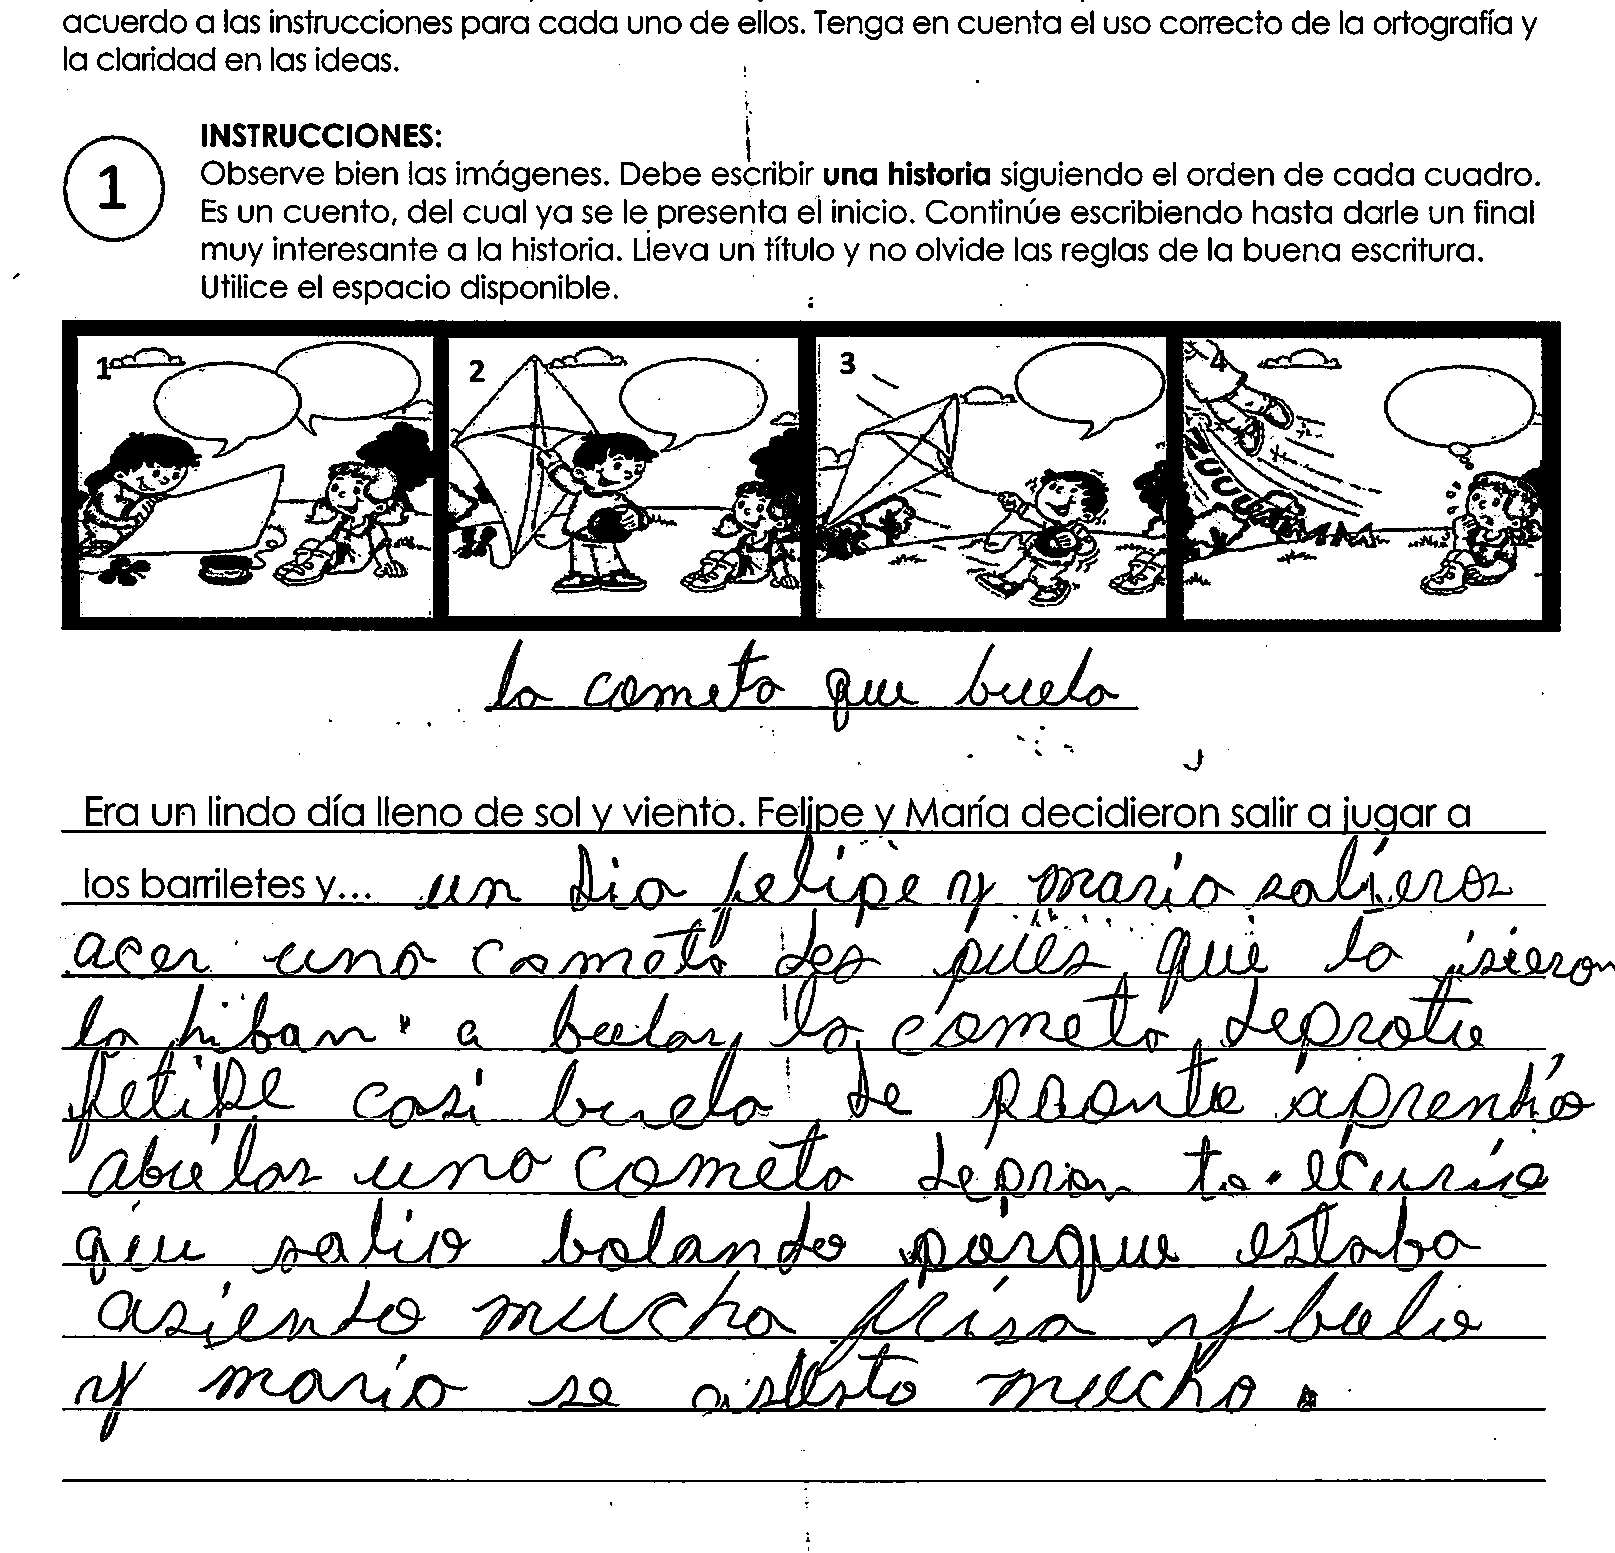 acuerdo a las instrucciones para cada uno de ellos. Tenga en cuenta el uso correcto de la ortografía y
la claridad en las ideas.
1
INSTRUCCIONES:
Observe bien las imágenes. Debe escribir una historia siguiendo el orden de cada cuadro.
Es un cuento, del cual ya se le presenta el inicio. Continúe escribiendo hasta darle un final
muy interesante a la historia. Lleva un título y no olvide las reglas de la buena escritura.
Utilice el espacio disponible.
1 2 3 4
la cometa que buela
Era un lindo día lleno de sol y viento. Felipe y María decidieron salir a jugar a
los barriletes y... un dia felipe y maria salieron
acer una cometa des pues que la isieron
la hiban a buelar la cometa
felipe casi buela de pronto aprendio
abuelar una cometa depron to
que salio bolando porque estaba
asiendo mucha brisa y buelo
y maria se asusto mucho.